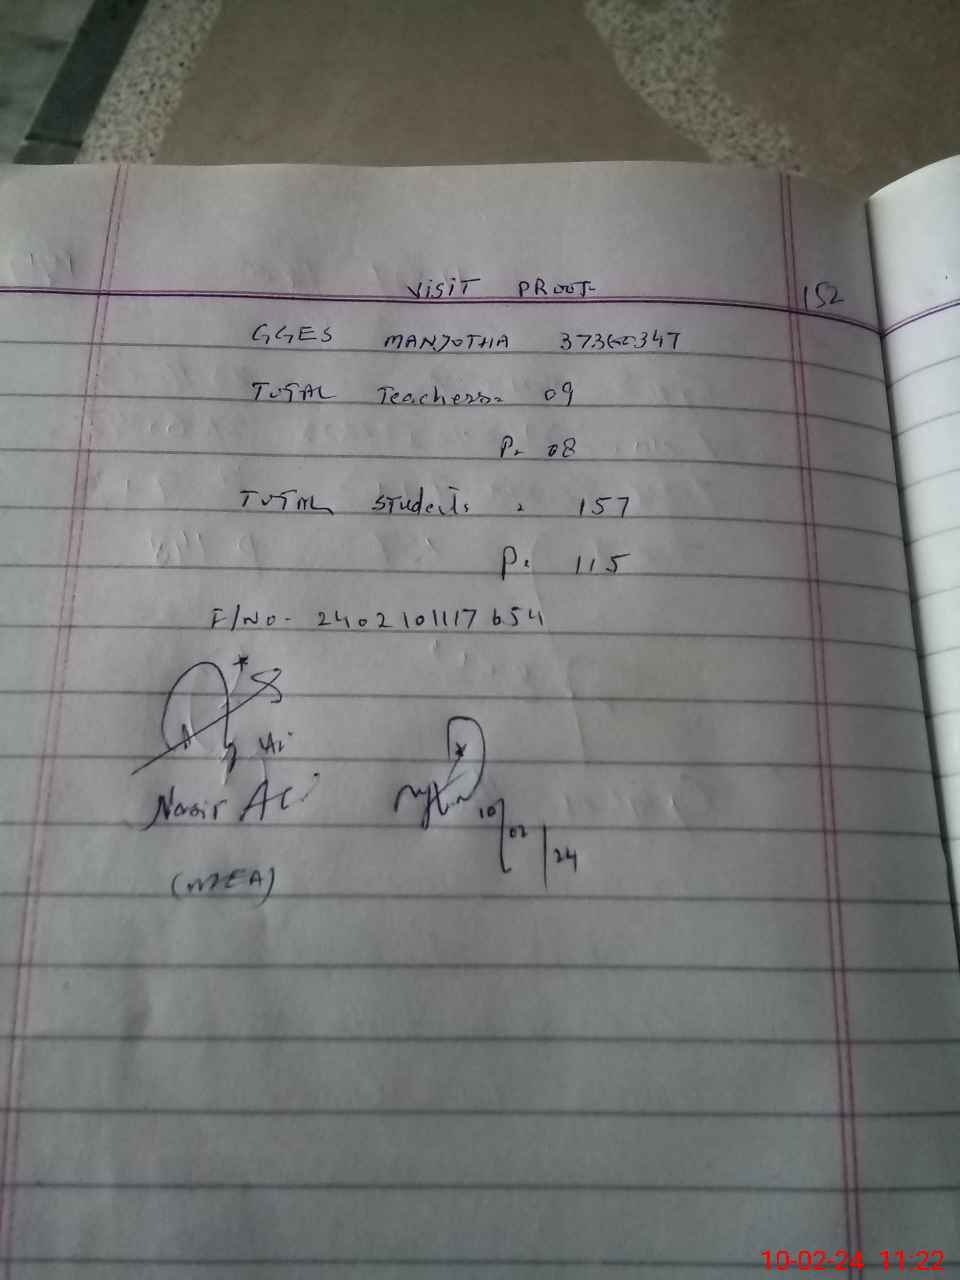 VISIT PROOF 152
GGES MANJOTHA 37360347
TOTAL Teachers= 09
P= 08
TOTAL Students = 157
P= 115
F/NO- 2402101117654
Nasir Ali
10/02/24
(MEA)
10-02-24 11:22